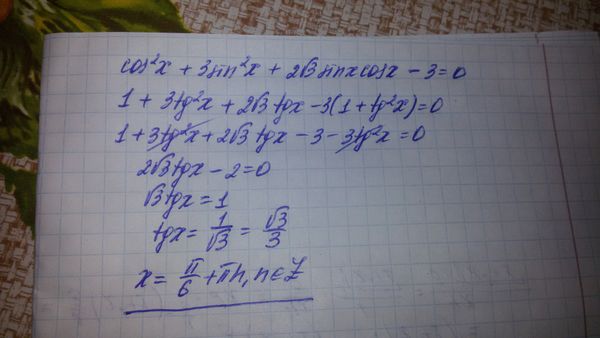 cos²x + 3sin²x + 2√3 sinx cosx − 3 = 0
1 + 3tg²x + 2√3 tgx − 3(1 + tg²x) = 0
1 + 3tg²x + 2√3 tgx − 3 − 3tg²x = 0
2√3 tgx − 2 = 0
√3 tgx = 1
tgx = 1/√3 = √3/3
x = π/6 + πn, n ∈ Z